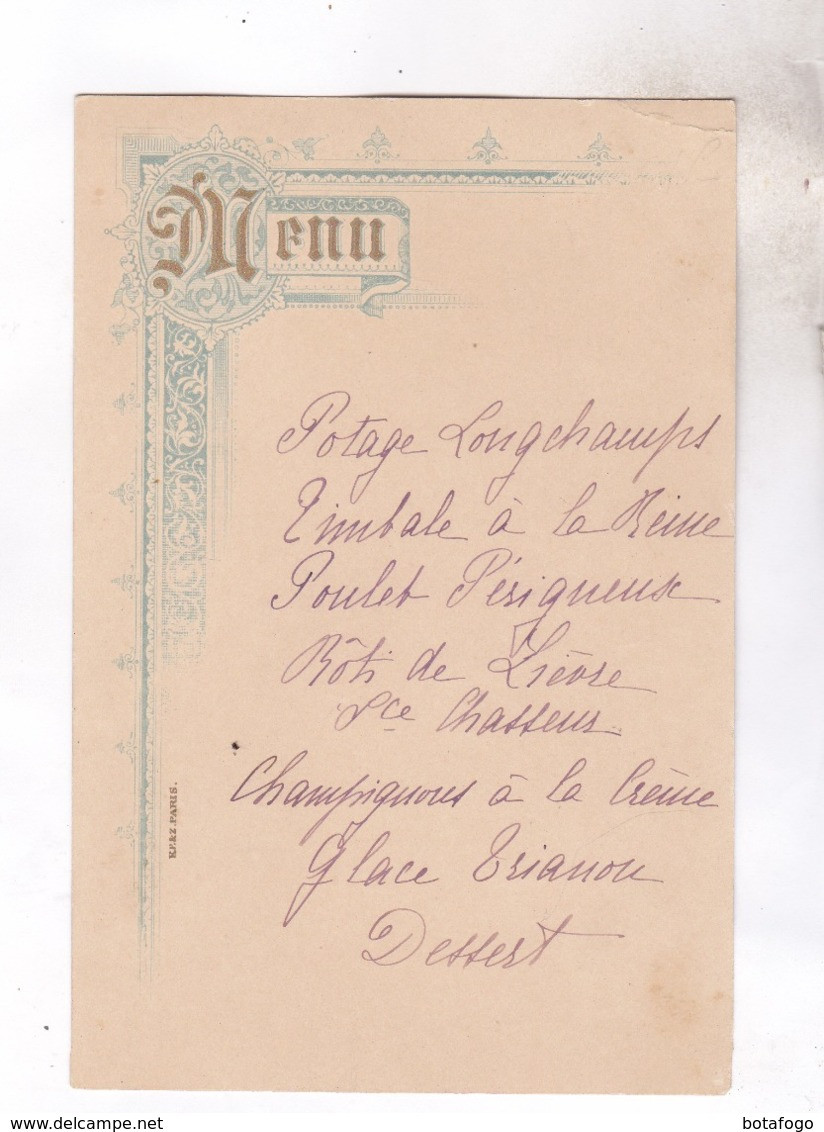 Menu
Potage Longchamps
Timbale à la Reine
Poulet Périgueux
Rôti de Lièvre
Sce Chasseur
Champignons à la Crème
Glace Trianon
Dessert
www.delcampe.net
botafogo